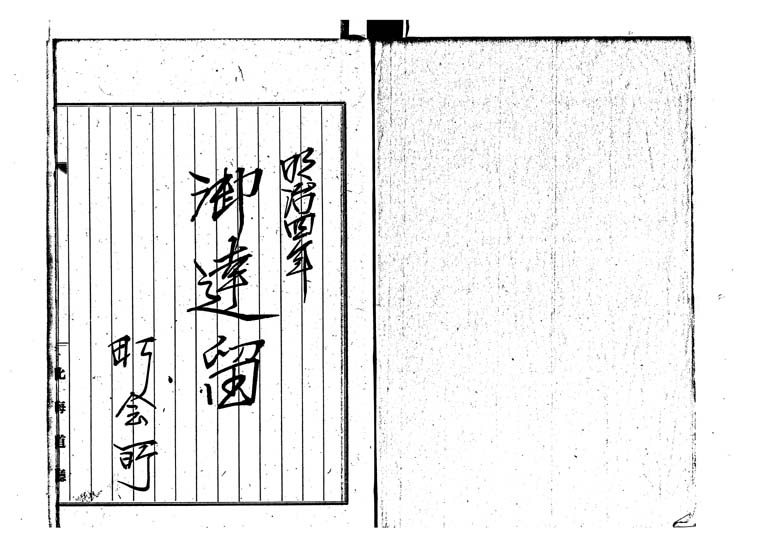 明治四年
御達留
町会所
北海道廳